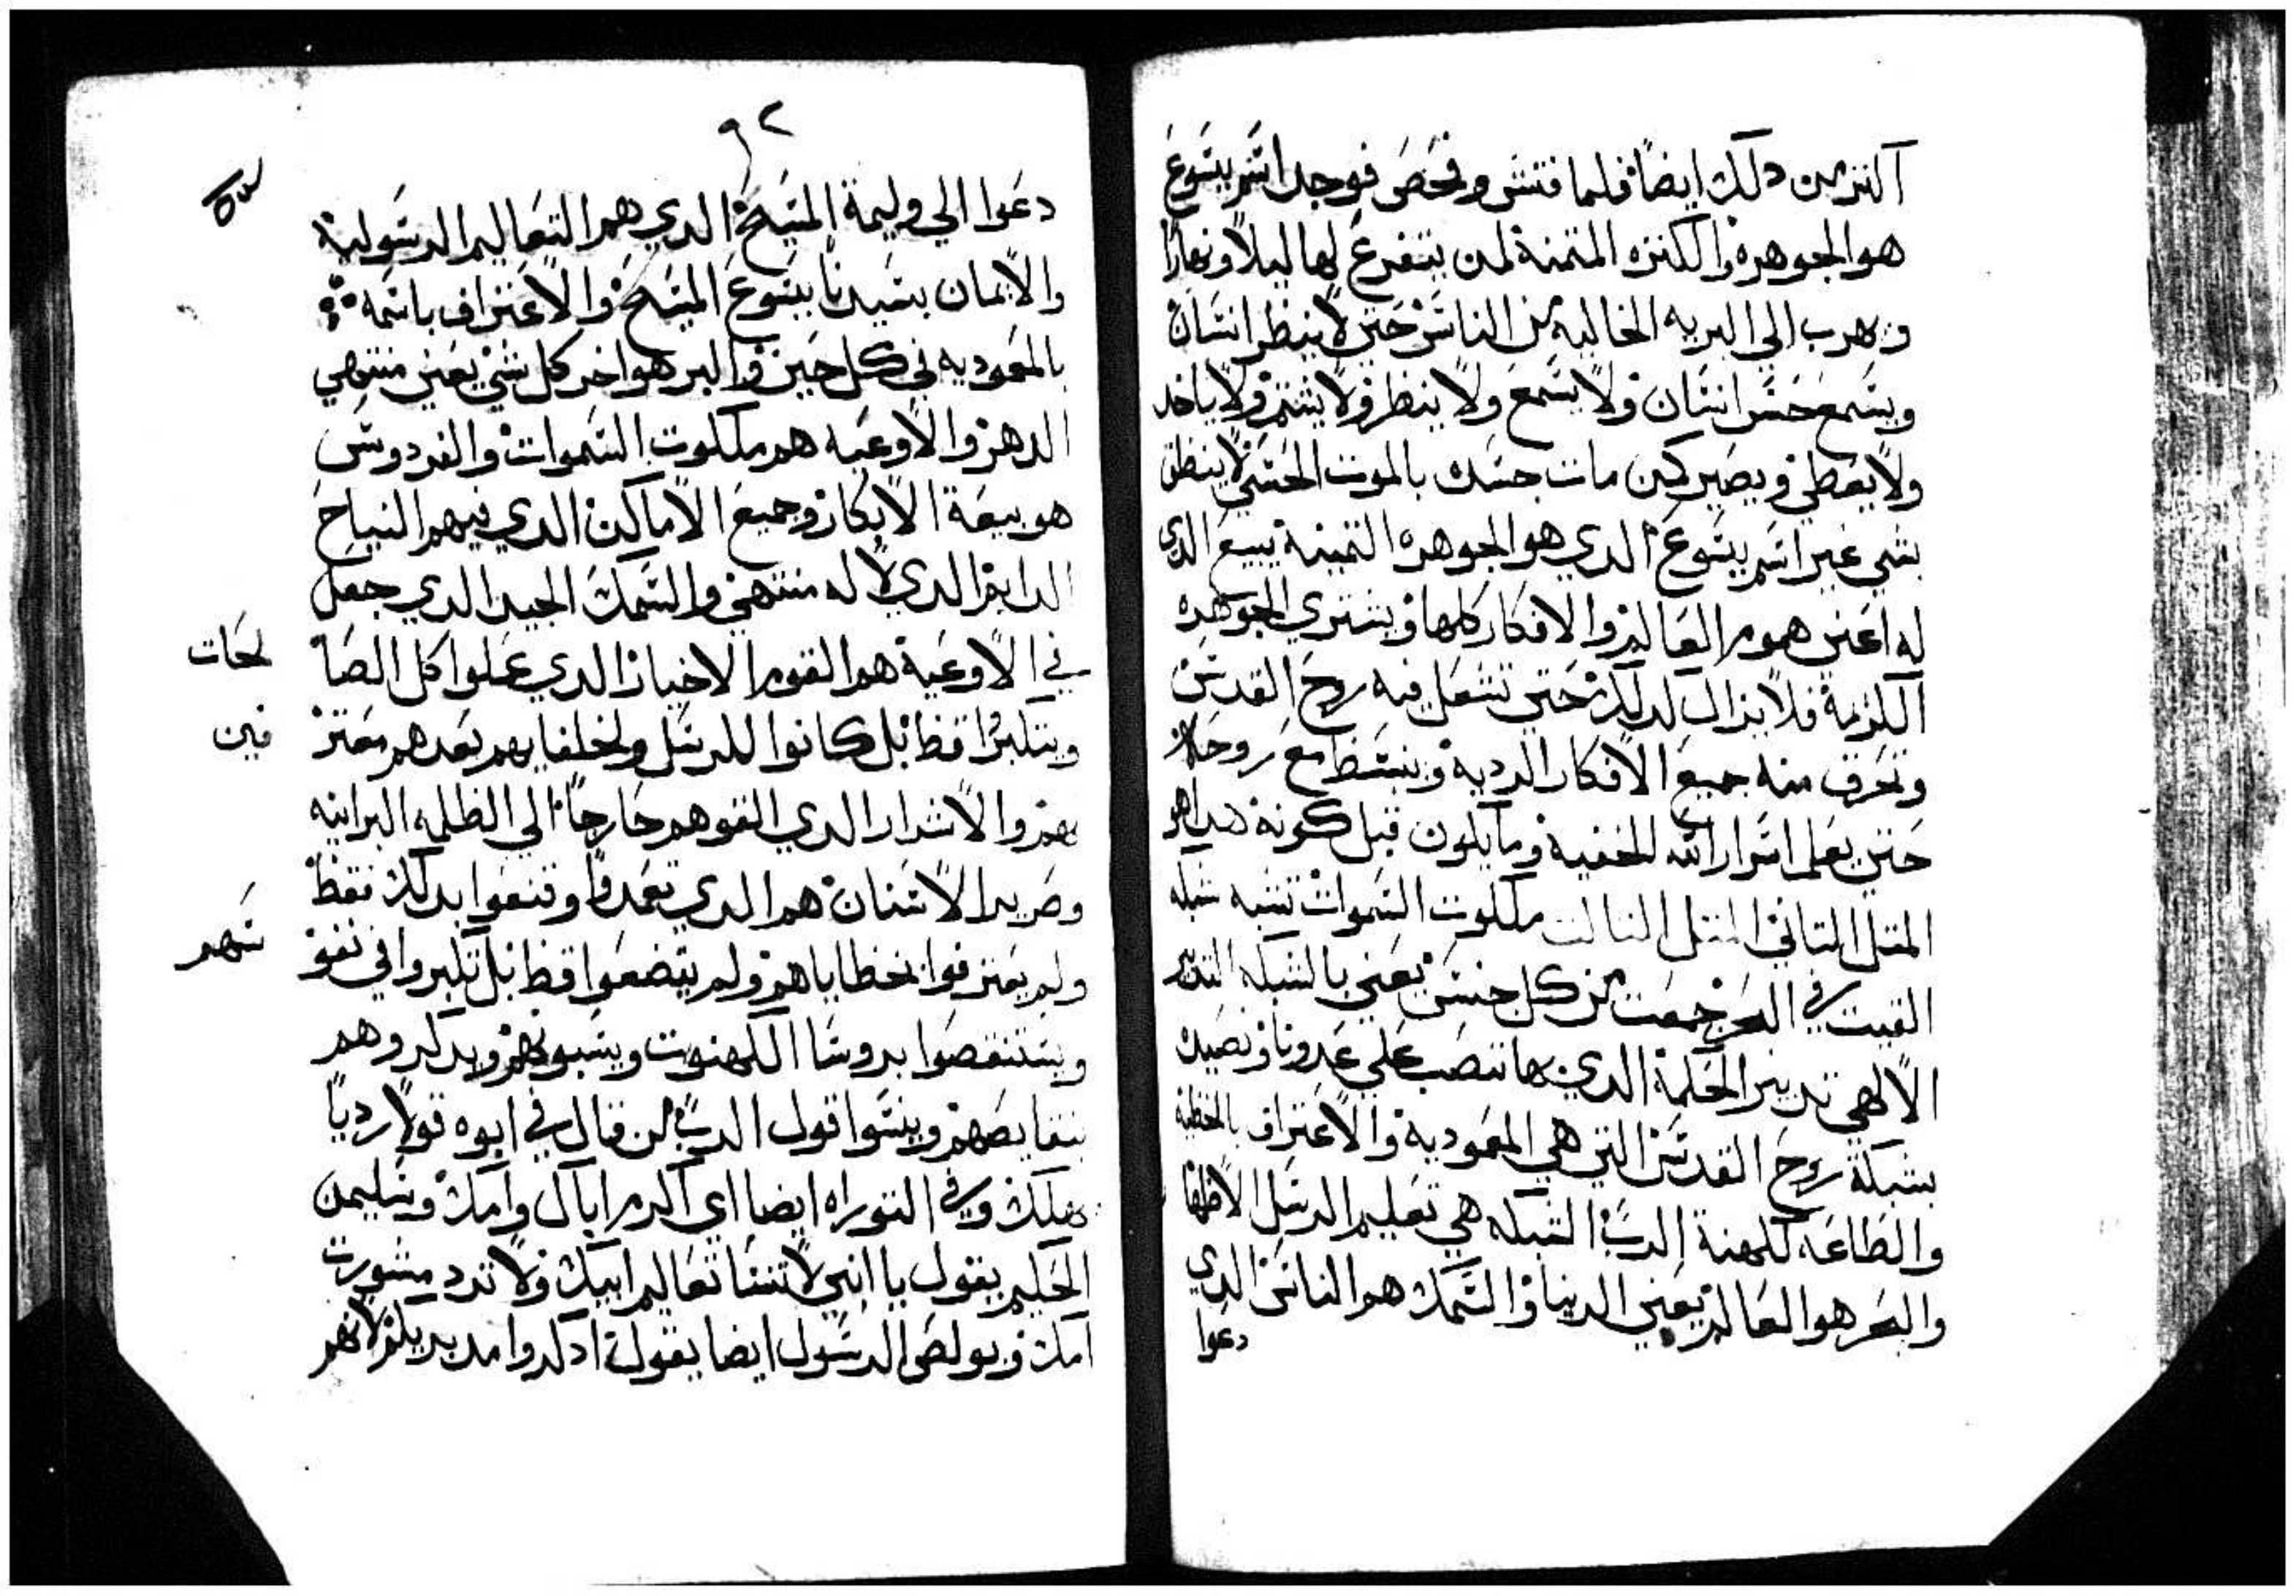 اكتر من دلك ايضاً فلما فتش وفحص فوجد اسم يسوع
هو الجوهره والكنزه المتمنة لمن يتفرغ لها ليلاً ونهاراً
وهرب الي البريه الخاليه من الناس حتي لا ينظر انسان
ويسمع حس انسان ولا يسمع ولا ينظر ولا يشم ولا ياخد
ولا يعطي ويصير كمن مات جسده بالموت الحسي لا ينطق
بشي غير اسم يسوع الدي هو الجوهره التمينة يبيع الدي
له اعني هموم العالم والافكار كلها ويشتري الجوهره
الكريمة فلا يزال كدلك حتي تشعل فيه روح القدس
وتحرق منه جميع الافكار الرديه وينبسط مع روحه
حتي يعلم اسرار الله الخفية وما يكون قبل كونه هدا هو
المتل التاني المتل التالت ملكوت السموات تشبه شبكه
القيت في البحر جمعت من كل جنس يعني بالشبكه التدبير
الالهي تدبير الحكمة الدي بها تنصب علي عدونا ونصيده
بشبكة روح القدس التي هي المعموديه والاعتراف بالخطيه
والطاعه لكهنة الرب الشبكه هي تعليم الرسل الاطهار
والبحر هو العالم يعني الدنيا والسمك هو الناس الدي
دعوا
٩٢
دعوا الي وليمة المسيح الدي هم التعاليم الرسوليه
والايمان بسيدنا يسوع المسيح والاعتراف باسمه
بالمعموديه في كل حين والبر هو اخر كل شي يعني منتهي
الدهر والاوعيه هم ملكوت السموات والفردوس
هو بيعة الابكار وجميع الاماكن الدي فيهم النياح
الدايم الدي لا له منتهي والسمك الجيد الدي جعل
في الاوعية هو القوم الاخيار الدي عملوا كل الصا لحات
ويتكبروا قط بل كانوا للرسل ولخلفايهم بعدهم معتر فين
بهم والاشرار الدي القوهم خارجاً الي الظلمه البرانيه
وصرير الاسنان هم الدي تعمدوا وقنعوا بدلك فقط
ولم يعترفوا بخطاياهم ولم يتضعوا قط بل تكبروا في نفو سهم
ويستنقصوا بروسا الكهنوت ويسبونهم ويدكروهم
بنقايصهم وينسوا قول الرب من قال في ابوه قولاً رديا
يهلك وفي التوراه ايضا اي اكرم اباك وامك وسليمن
الحكيم يقول يا ابني لا تنسا تعاليم ابيك ولا ترد مشورت
امك وبولص الرسول ايضا يقول ادكروا مدبريكم لانهم